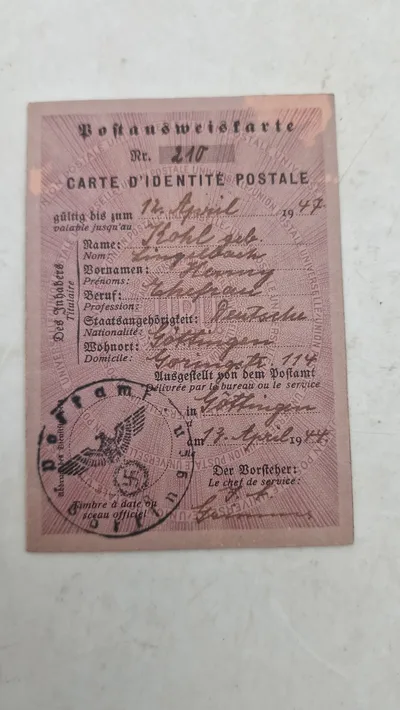 Postausweiskarte
Nr. 210
CARTE D'IDENTITÉ POSTALE
gültig bis zum 12. April 1947
valable jusqu'au
Des Inhabers
Titulaire
Name: Bohl geb.
Nom: Lingelbach
Vornamen: Henny
Prénoms:
Beruf: Ehefrau
Profession:
Staatsangehörigkeit: Deutsche
Nationalité:
Wohnort: Göttingen
Domicile: 114
Ausgestellt von dem Postamt
Délivrée par le bureau ou le service
in Göttingen
am 13. April 1944
le
Der Vorsteher:
Le chef de service:
Postamt
Göttingen
Timbre à date ou
sceau officiel